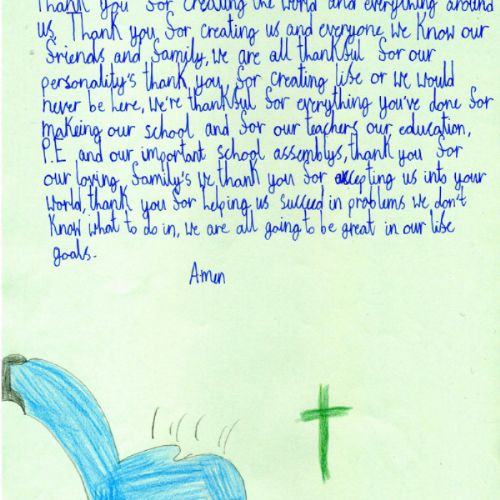 Thank you for creating the world and everything around
us, Thank you for creating us and everyone we know our
friends and family, we are all thankful for our
personality's thank you for creating life or we would
never be here, We're thankful for everything you've done for
makeing our school and for our teachers our education,
P.E and our important school assemblys, thank you for
our loving family's we thank you for accepting us into your
world, thank you for helping us succeed in problems we don't
know what to do in, we are all going to be great in our life
goals.
Amen